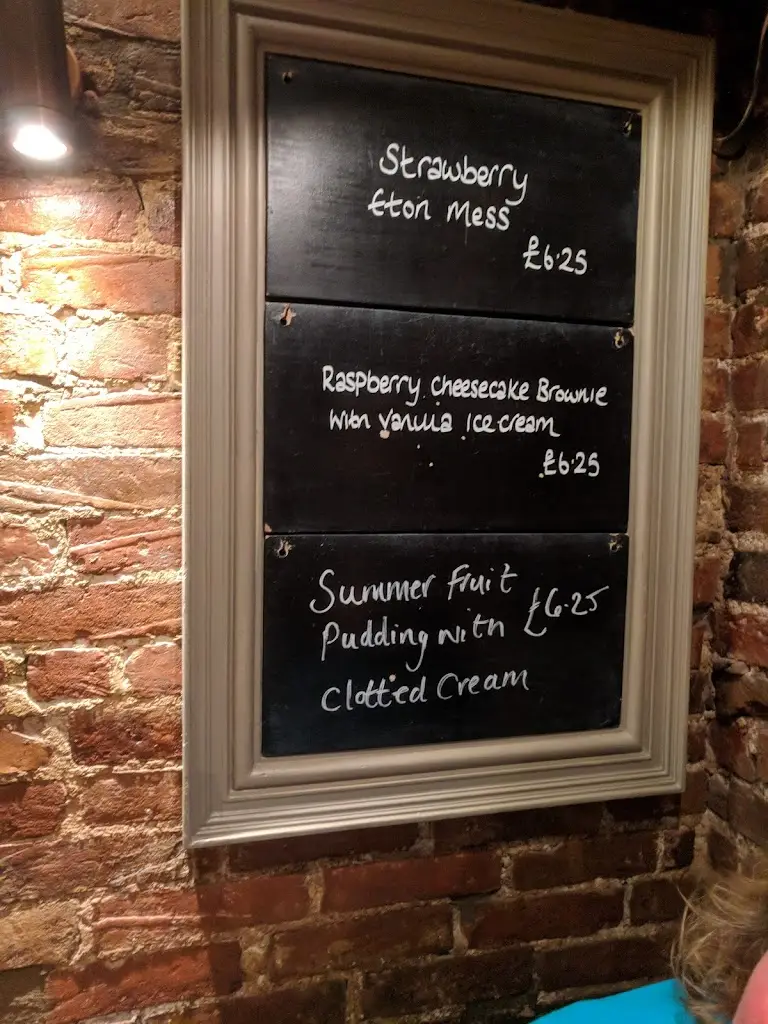 Strawberry
Eton Mess
£6.25
Raspberry Cheesecake Brownie
with vanilla ice cream
£6.25
Summer Fruit
£6.25
Pudding with
Clotted Cream